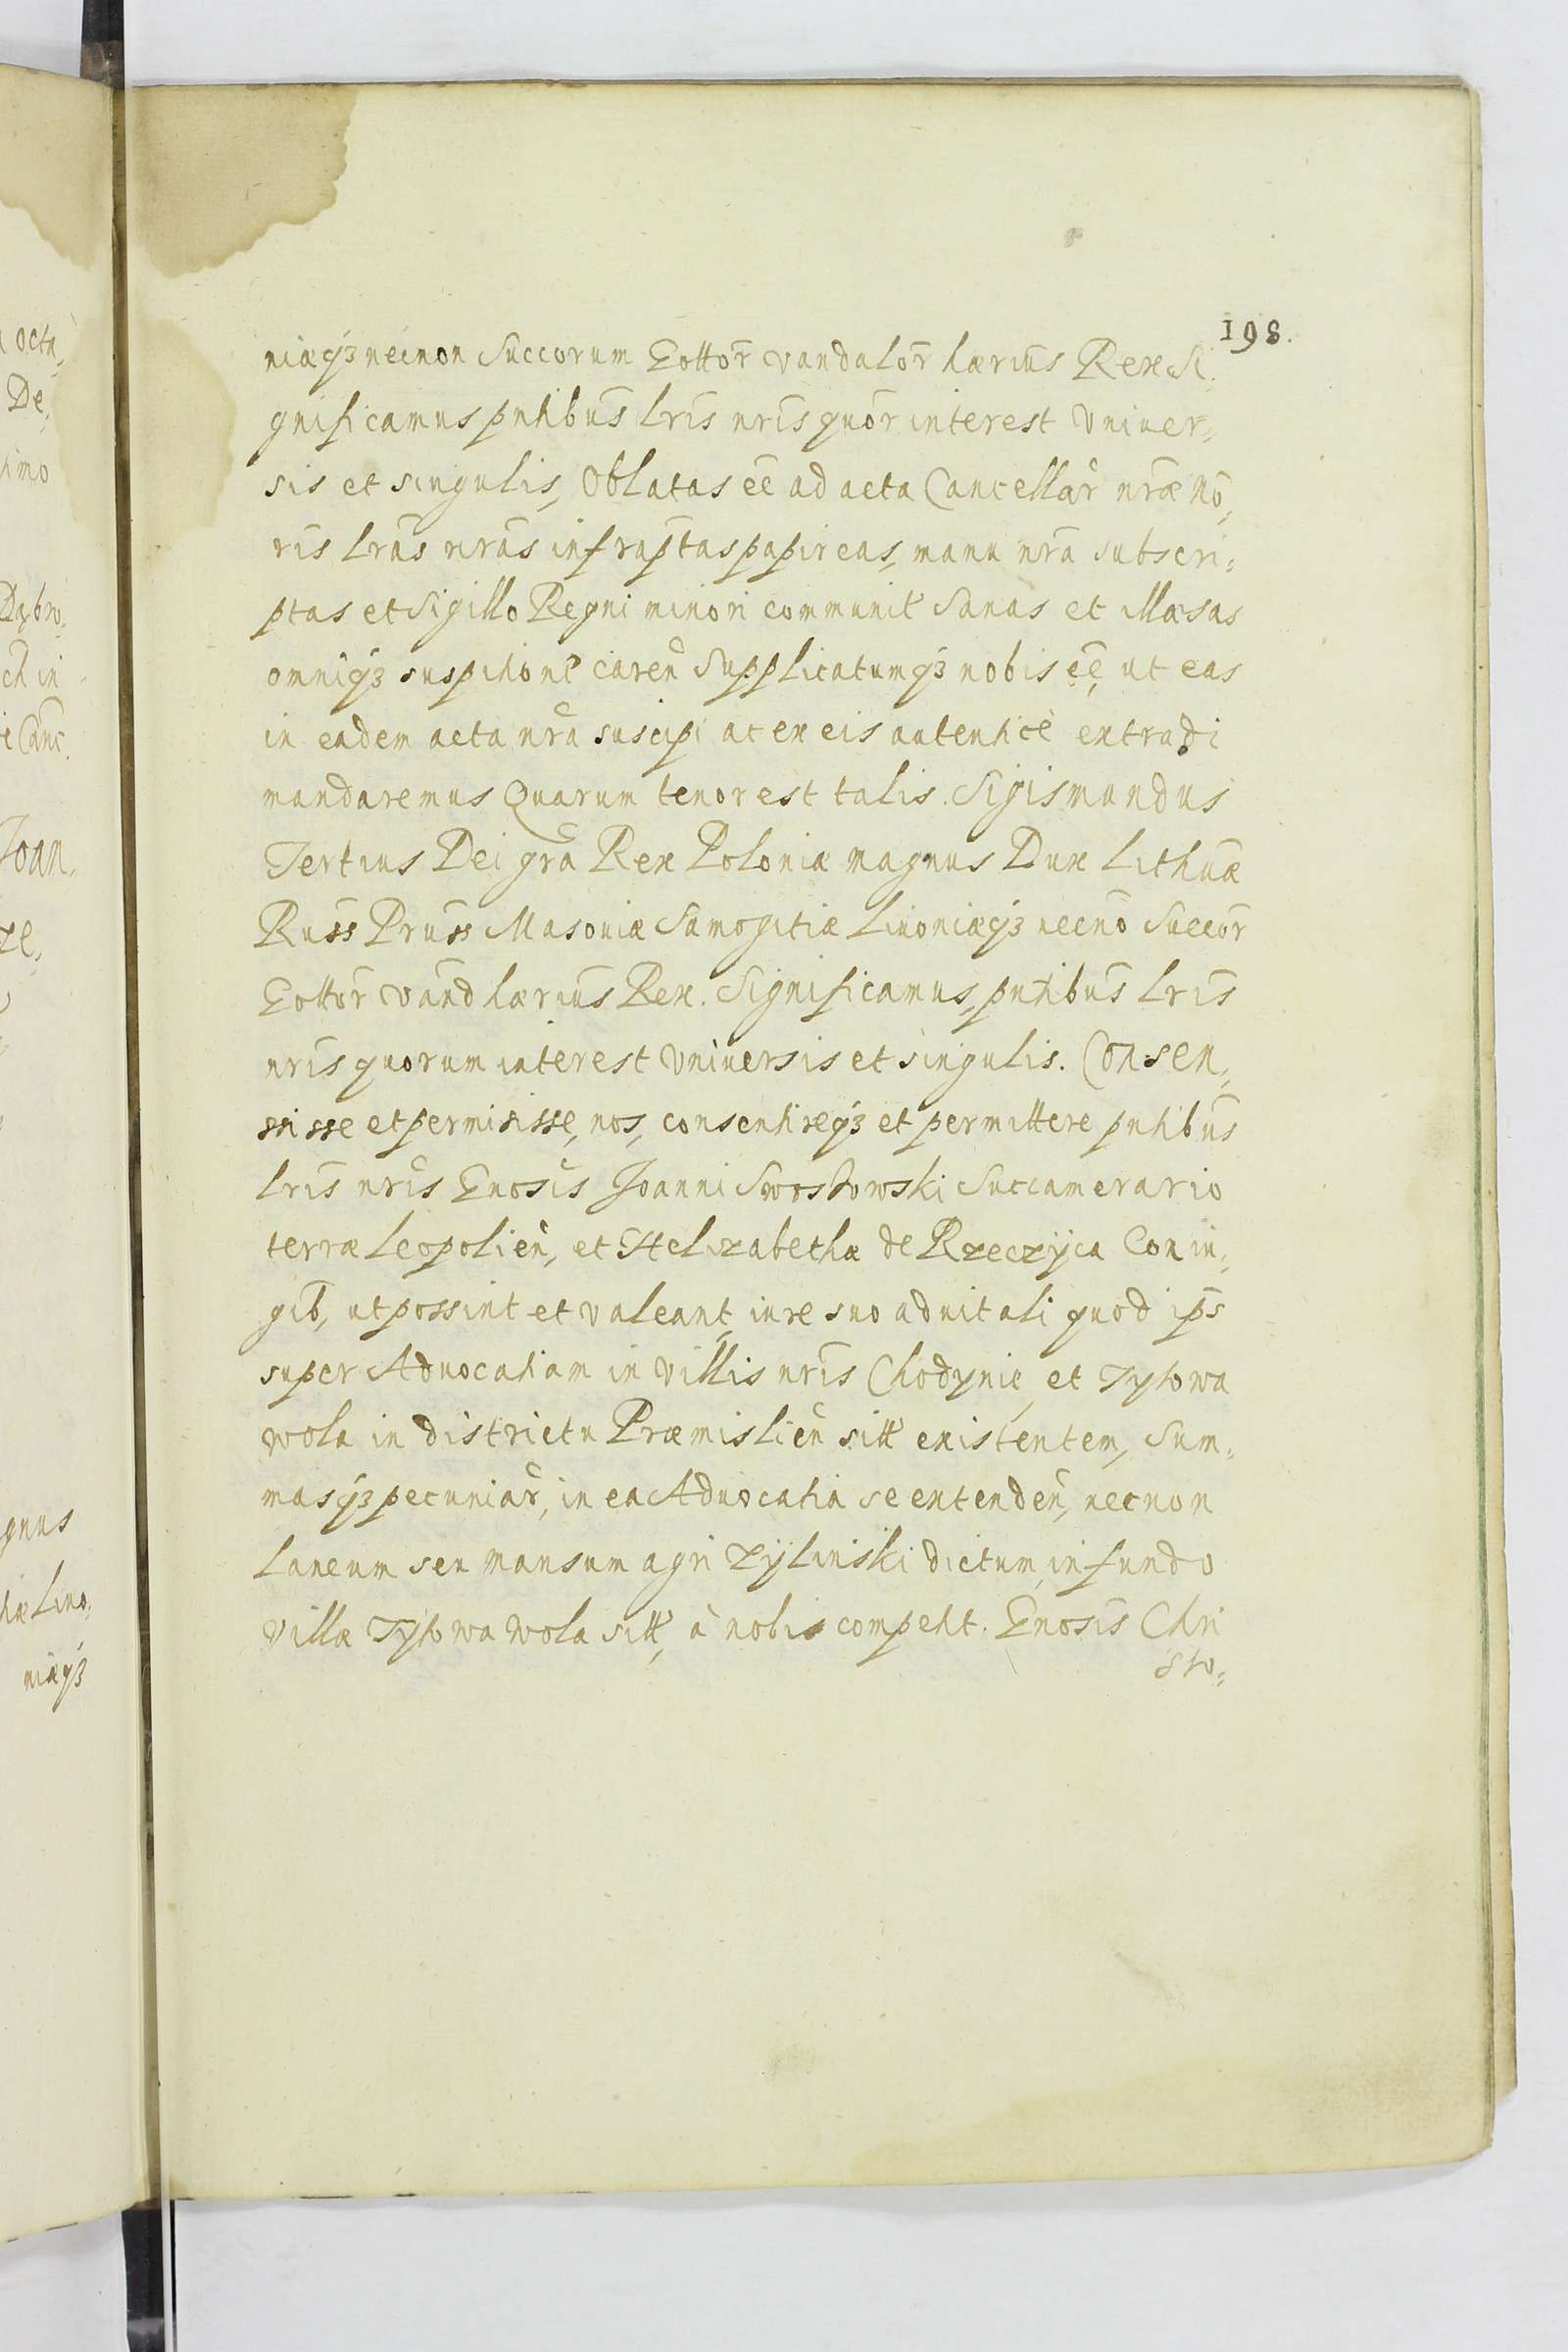 198.
niæq₃ necnon Succorum Gottor̄ vandalor̄ hærius̄ Rex Si
gnificamus pn̄tibus̄ lr̄is nr̄is quor̄ interest Vniuer=
sis et singulis, Oblatas ēē ad acta Cancellar̄ nr̄æ nō=
ris lr̄as nr̄as infrap̄tas papireas, manu nr̄a subscri=
ptas et Sigillo Regni minori communit̄ Sanas et Illæsas
omniq₃ suspitione caren̄ Supplicatumq₃ nobis ēē, ut eas
in eadem acta nr̄a suscipi ac ex eis autentice extradi
mandaremus Quarum tenor est talis. Sigismundus
Tertius Dei gr̄a Rex Poloniæ magnus Dux Lithuæ
Russ̄ Pruss̄ Masouiæ Samogitiæ Liuoniæq₃ necno Succor̄
Gottor̄ vand̄ hærius̄ Rex. Significamus, pn̄tibus̄ lr̄is
nr̄is quorum interest Vniuersis et singulis. Consen=
sisse et permisisse, nos, consentireq₃ et permittere pn̄tibus̄
lr̄is nr̄is Gnosis Joanni Swoszowski Succamerario
terræ Leopolien̄, et Helizabethæ de Rzeczyca Coniu=
gib, ut possint et valeant, iure suo aduitali quod ips̄
super Aduocatiam in Villis nr̄is Chodynie, et Tytowa
wola in districtu Præmislien̄ sitt existentem, Sum=
masq₃ pecuniar̄, in ea Aduocatia se extenden̄, necnon
Laneum seu mansum agri Zylinski dictum, in fundo
villæ Tytowa wola sitt, à nobis compettt. Gnosis Chri
sto=
octa=
De=
simo
Dąbro=
ch in
Canc̄
Joan.
ze=
gnus
Liuo=
niæq₃